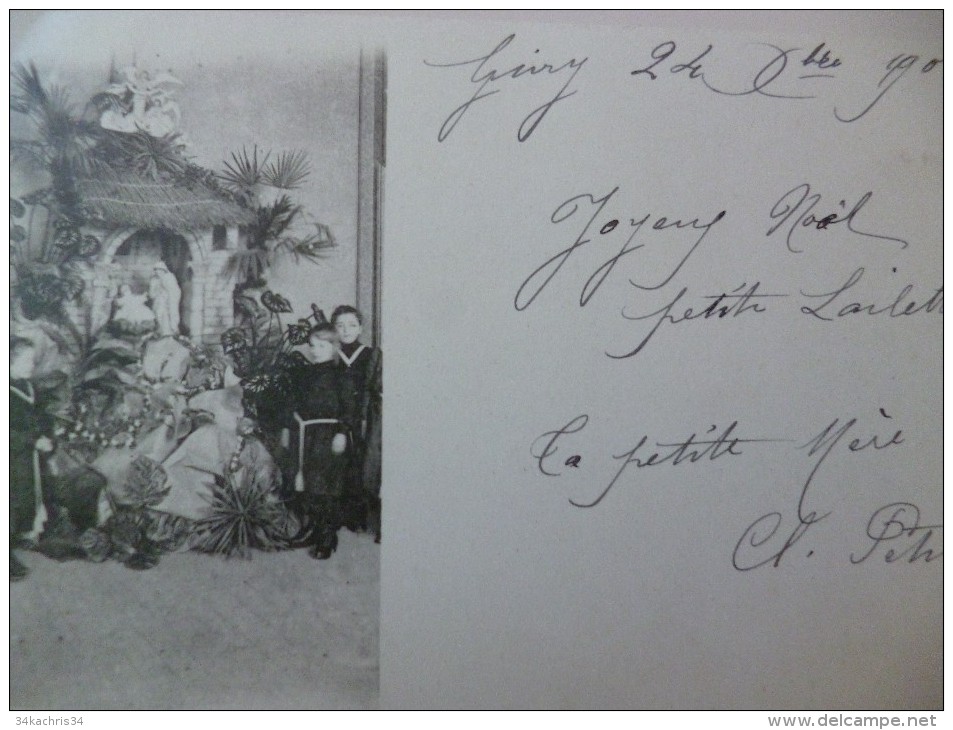 Givry 24 Xbre 190
Joyeux Noël
petite Lailett
Ta petite Mère
Cl. Pét
34kachris34
www.delcampe.net